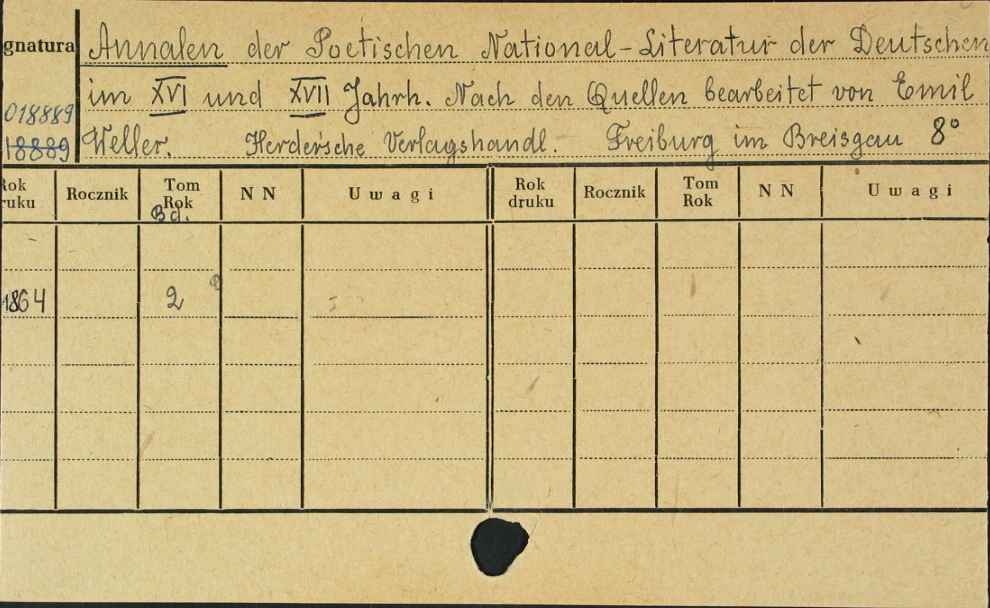 gnatura Annalen der Poetischen National-Literatur der Deutschen
im XVI und XVII Jahrh. Nach den Quellen bearbeitet von Emil
018889
18889 Weller. Herder'sche Verlagshandl. Freiburg im Breisgau 8°
Rok ruku Rocznik Tom Rok NN Uwagi Rok druku Rocznik Tom Rok NN Uwagi
Bd.
1864 2